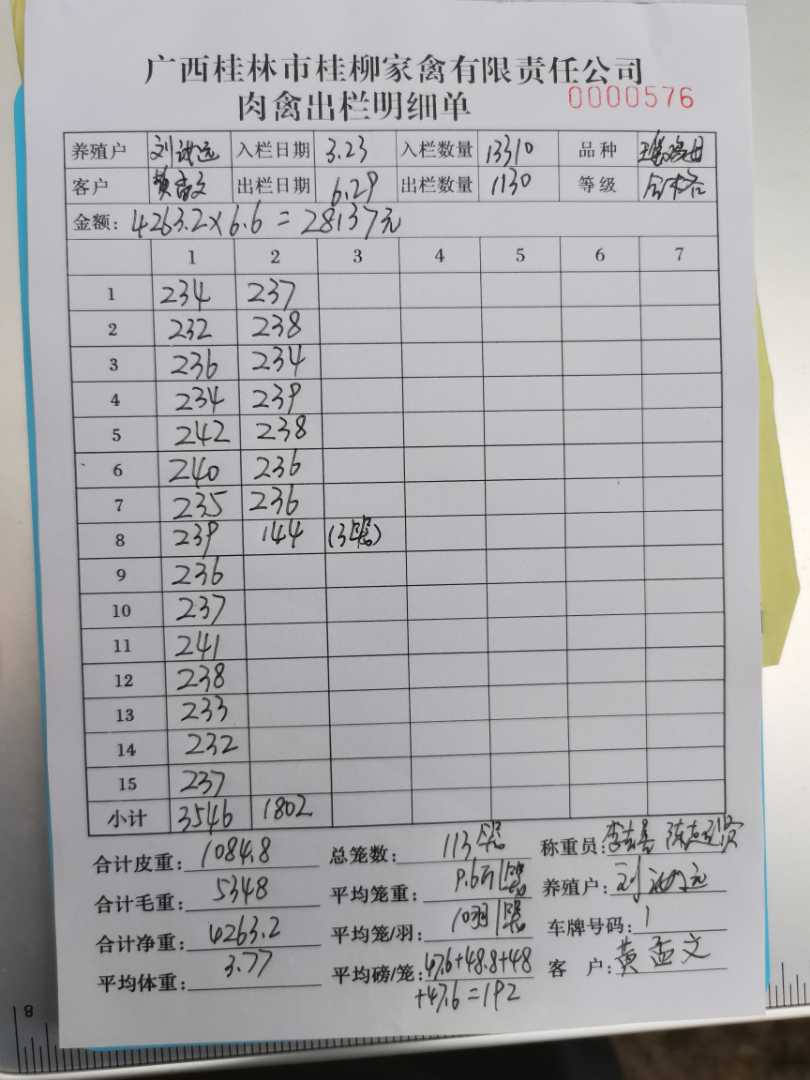 广西桂林市桂柳家禽有限责任公司
肉禽出栏明细单 0000576
养殖户 入栏日期 3.23 入栏数量 13310 品种
客户 黄孟文 出栏日期 6.29 出栏数量 1130 等级 合格
金额: 4263.2×6.6=28137元
1 2 3 4 5 6 7
1 234 237
2 232 238
3 236 234
4 234 239
5 242 238
6 240 236
7 235 236
8 239 144 (3笼)
9 236
10 237
11 241
12 238
13 233
14 232
15 237
小计 3546 1802
合计皮重: 1084.8 总笼数: 113笼 称重员:
合计毛重: 5348 平均笼重: 9.6斤/笼 养殖户:
合计净重: 4263.2 平均笼/羽: 10羽/笼 车牌号码: 1
平均体重: 3.77 平均磅/笼: 47.6+48.8+48 客户: 黄孟文
+47.6=192
8